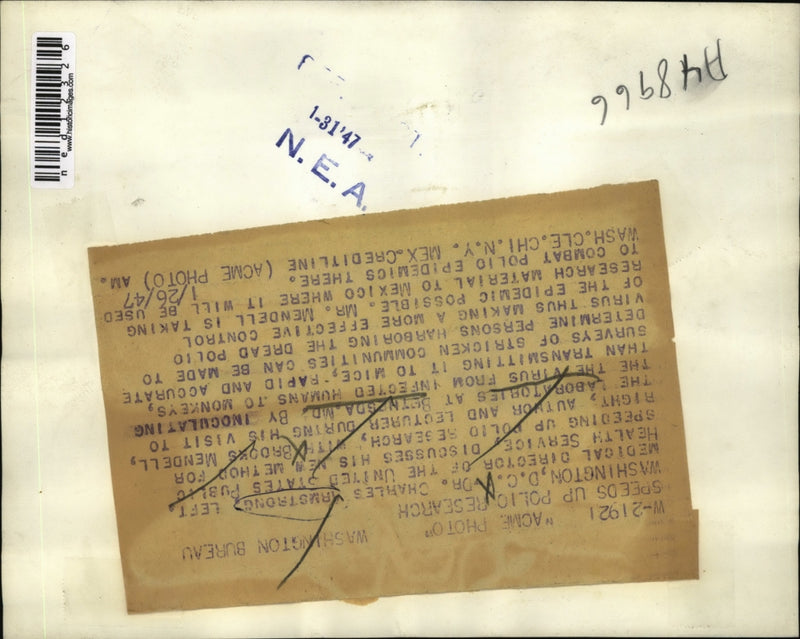 ned126326
www.historicimages.com
A48966
1-31'47
N.E.A.
W-21921 "ACME PHOTO" WASHINGTON BUREAU
SPEEDS UP POLIO RESEARCH
WASHINGTON,D.C.-DR. CHARLES ARMSTRONG, LEFT,
MEDICAL DIRECTOR OF THE UNITED STATES PUBLIC
HEALTH SERVICE, DISCUSSES HIS NEW METHOD FOR
SPEEDING UP POLIO RESEARCH, WITH BROOKS MENDELL,
RIGHT, AUTHOR AND LECTURER DURING HIS VISIT TO
THE LABORATORIES AT BETHSDA.MD. BY INOCULATING
THE VIRUS FROM INFECTED HUMANS TO MONKEYS,
THAN TRANSMITTING IT TO MICE, RAPID AND ACCURATE
SURVEYS OF STRICKEN COMMUNITIES CAN BE MADE TO
DETERMINE PERSONS HARBORING THE DREAD POLIO
VIRUS THUS MAKING POSSIBLE A MORE EFFECTIVE CONTROL
OF THE EPIDEMIC. MR. MENDELL IS TAKING
RESEARCH MATERIAL TO MEXICO WHERE IT WILL BE USED
TO COMBAT POLIO EPIDEMICS THERE. 1/26/47
WASH.CLE.CHI.N.Y. MEX.CREDITLINE (ACME PHOTO) AM.